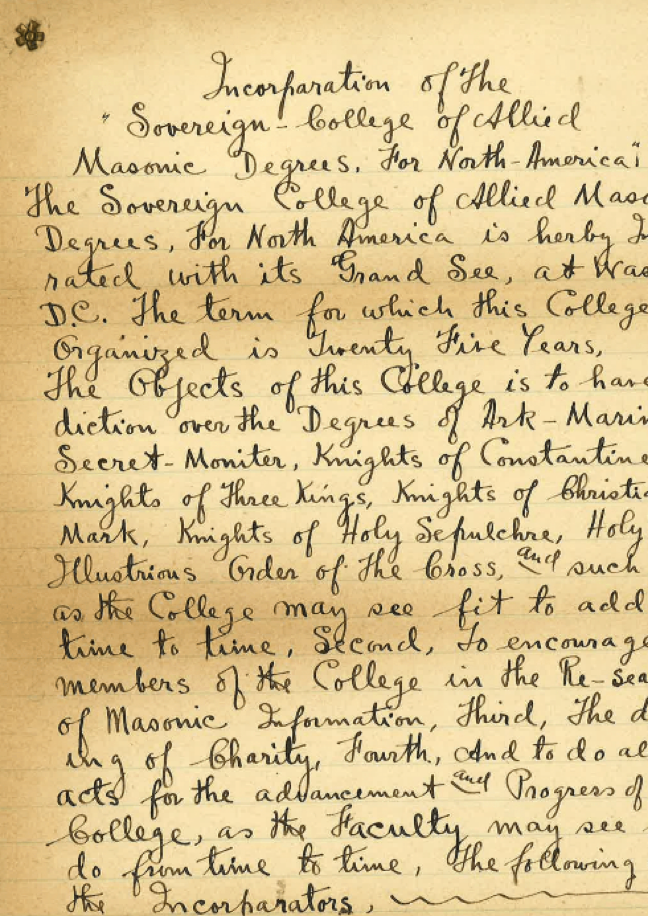 Incorparation of the
"Sovereign-College of Allied
Masonic Degrees. For North-America"
The Sovereign College of Allied Maso
Degrees, For North America is herby In
rated with its Grand See, at Was
D.C. The term for which this College
Organized is Twenty Five Years,
The Objects of this College is to have
diction over the Degrees of Ark-Marin
Secret-Moniter, Knights of Constantine
Knights of Three Kings, Knights of Christia
Mark, Knights of Holy Sepulchre, Holy
Illustrious Order of the Cross, and such
as the College may see fit to add
time to time, Second, To encourage
members of the College in the Re-sea
of Masonic Information, Third, The d
ing of Charity, Fourth, And to do al
acts for the advancement and Progress of
College, as the Faculty may see
do from time to time, The following
the Incorparators,